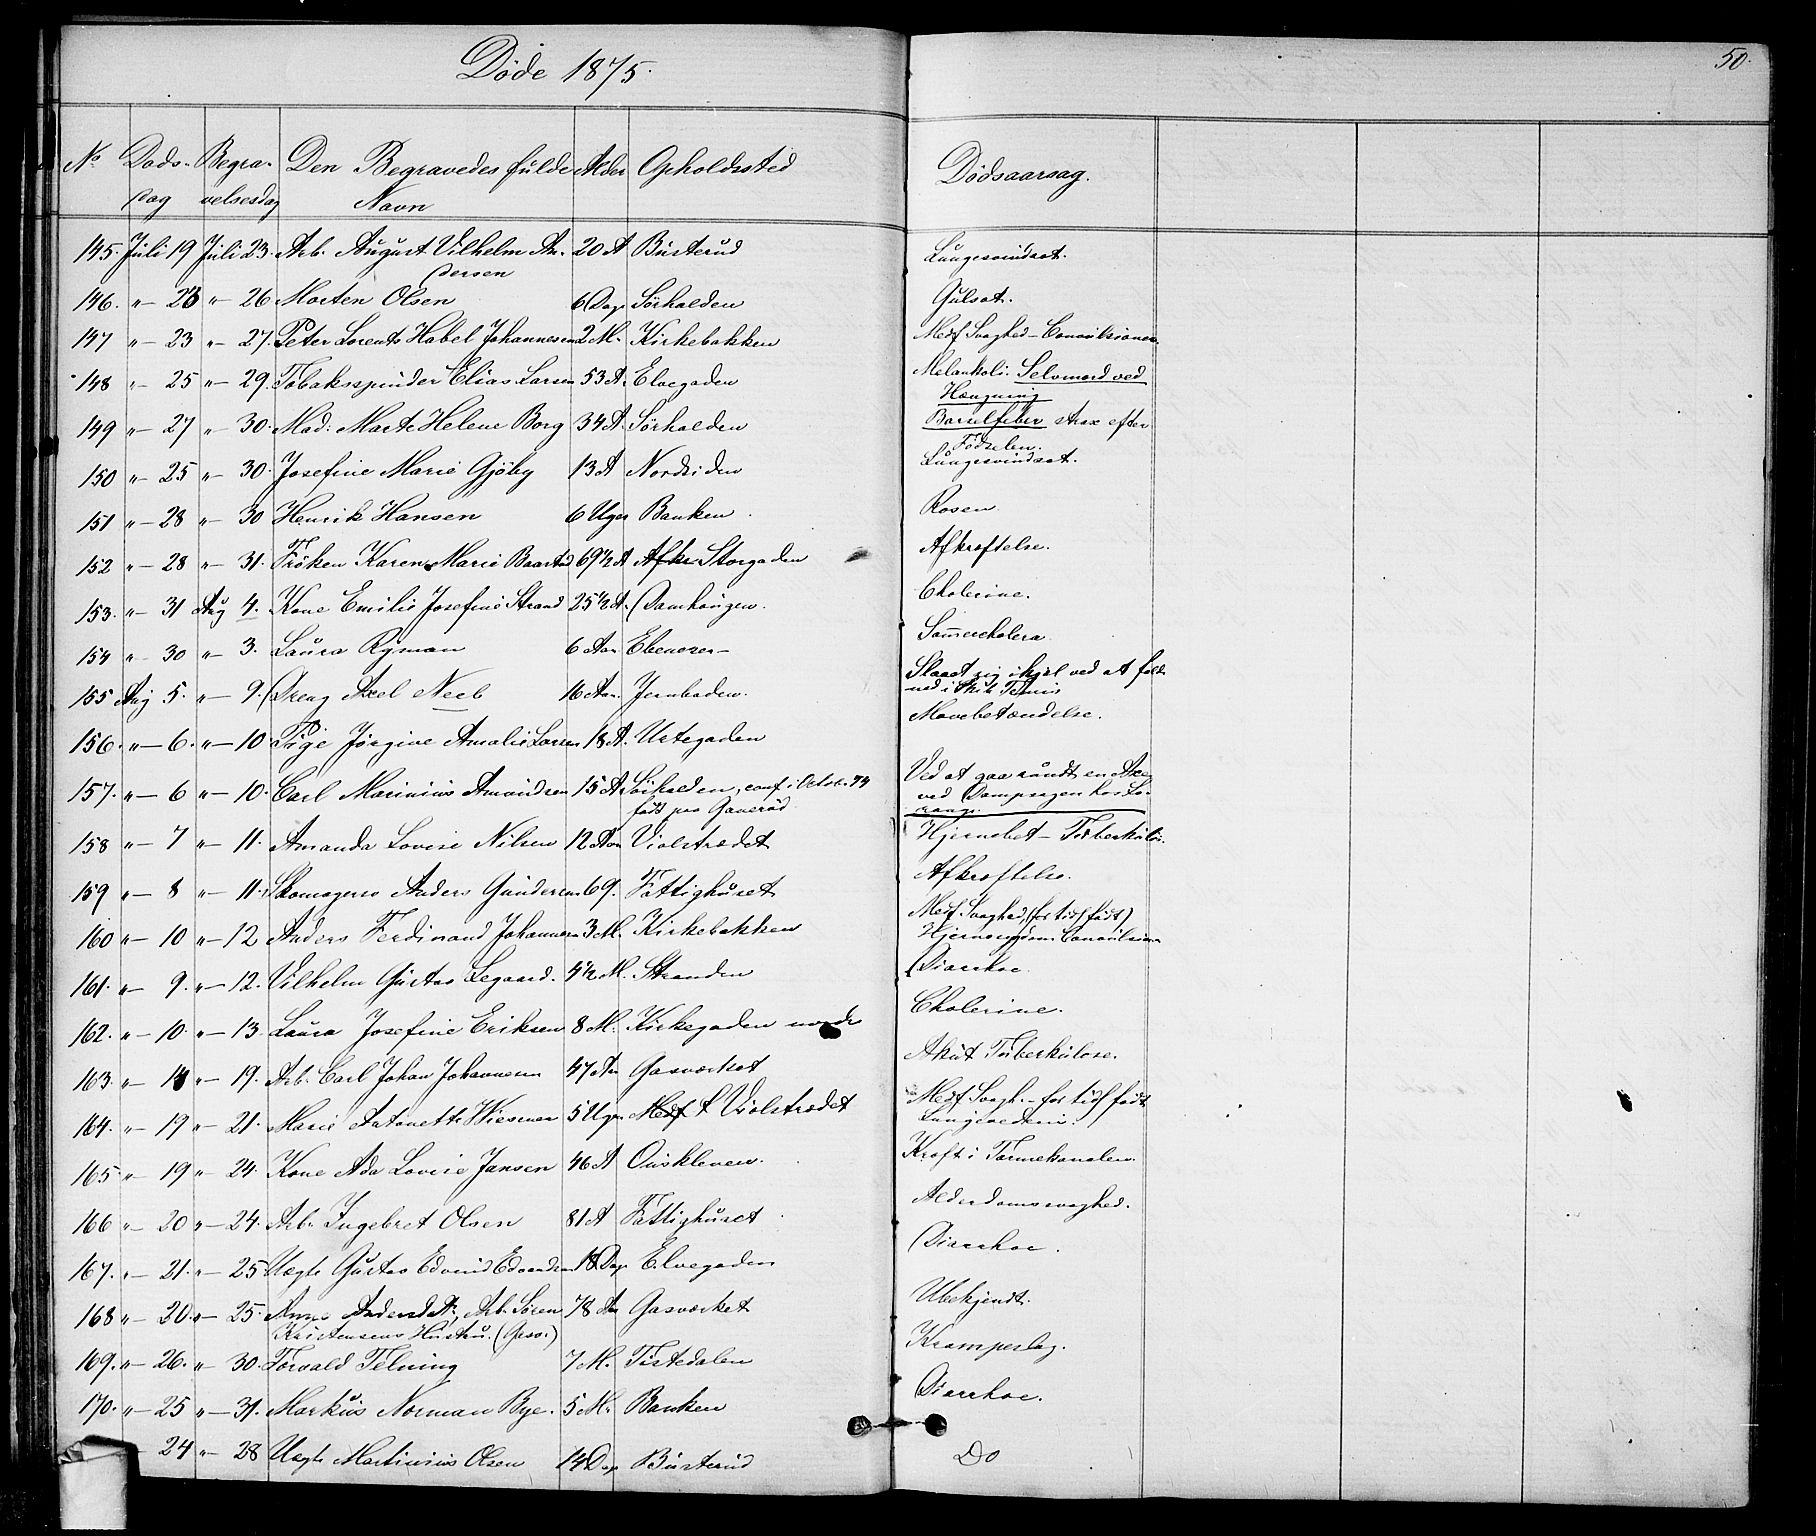 Døde 1875.
50.
No Døds- Begra- Den Begravedes fulde Alder Opholdssted Dødsaarsag.
dag velsesdag Navn
145. Juli 19 Juli 23. Arb. August Vilhelm An- 20 A Busterud Lungesvindsot.
dersen
146. " – 23 " – 26 Morten Olsen 6 Dage Sørhalden Gulsot.
147 " – 23 " – 27. Peter Lorents Habel Johannesen 2 M. Kirkebakken Medf Svaghed – Convulsioner
148 " – 25 " – 29. Tobaksspinder Elias Larsen 53 A. Elvegaden Melankoli. Selvmord ved
Hængning
149 " – 27 " – 30. Mad: Marte Helene Borg 34 A. Sørhalden Barselfeber strax efter
Fødselen.
150 " – 25 " – 30. Josefine Marie Gjøby 13 A Nordsiden Lungesvindsot.
151 " – 28 " – 30 Henrik Hansen 6 Uger Banken. Rosen
152 " – 28 " – 31. Frøken Karen Marie Baastad 69 1/2 A Afkr Storgaden Afkræftelse.
153. " – 31 Aug 4. Kone Emilie Josefine Strand 25 1/2 A. Damhaugen. Cholerine.
154 " – 30 " – 3. Laura Ryman 6 Aar Ebenezer – Sommercholera
155 Aug 5. " – 9. Dreng Axel Neeb 16 Aar. Jernbaden. Slaaet sig ihjel ved at falde
ned i
156. " – 6. " – 10. Pige Jørgine Amalie Larsen 18 A. Urtegaden Mavebetændelse.
157. " – 6 " – 10. Carl Marinius Amundsen 15 A Sørhalden, conf. i Octob. 74 Ved at gaa rundt en Axe
født paa ved Dampsagen hos So-
range.
158 " – 7 " – 11. Amanda Lovise Nilsen 12 Aar Violstrædet Hjernebet – Tuberkulos.
159 " – 8 " – 11. Skomagersv Anders Gundersen 69. Fattighuset Afkræftelse.
160 " – 10 " – 12 Anders Ferdinand Johannesen 3 M. Kirkebakken Medf Svaghed, (for tidl født)
Hjernesygdom Convulsion
161. " – 9. " – 12. Vilhelm Gustav Legaard. 4 1/2 M. Stranden Diarrhoe.
162. " – 10. " – 13. Laura Josefine Eriksen 8 M. Kirkegaden nordre Cholerine.
163. " – 14 " – 19. Arb. Carl Johan Johannesen 47 Aar Gasværket Akut Tuberkulose.
164. " – 19 " – 21. Marie Antonette Wiesener 5 Uger Medf f Violstrædet Medf Svagh. – for tidl født
Lungeoedem.
165. " – 19 " – 24. Kone Ada Lovise Jansen 46 A Ouskleven. Kræft i Tarmekanalen.
166 " – 20 " – 24. Arb. Ingebret Olsen 81 A Fattighuset Alderdomssvaghed.
167. " – 21. " – 25 Uægte Gustav Edvind Edvardsen 18 Dage Elvegaden Diarrhoe.
168 " – 20. " – 25. Anne Andersdatr, Arb. Søren 78 Aar Gasværket Ubekjendt.
Kristensens Hustru.
169. " – 26. " – 30. Torvald Telning 7 M. Tistedalen Krampeslag.
170. " – 25 " – 31. Markus Norman Bye. 5 M. Banken Diarrhoe.
– 24 " – 28 Uægte Martinius Olsen 14 Dage Busterud Do